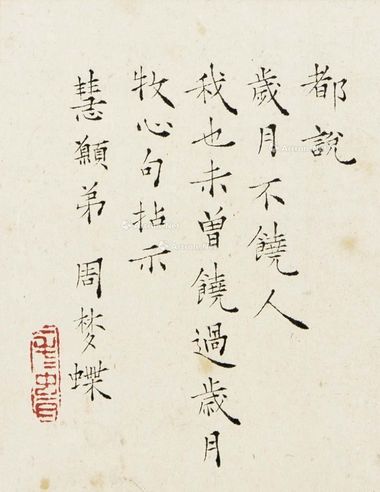 都說
歲月不饒人
我也未曾饒過歲月
牧心句拈示
慧顥弟 周梦蝶